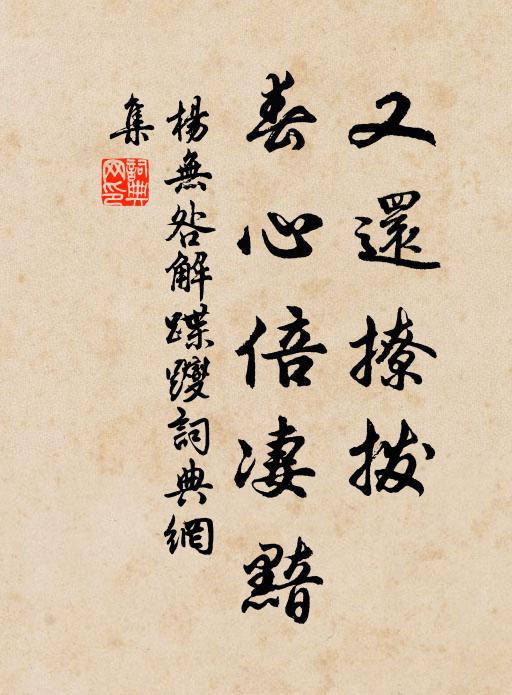 又還撩撥
春心倍凄黯
楊無咎解蹀躞詞典網
集
詞典
网印